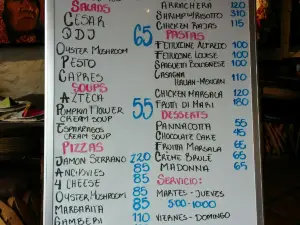 SALADS
CESAR
ODJ
OYSTER MUSHROOM
PESTO 65
CAPRES
SOUPS
AZTECA
PUMPKIN FLOWER
CREAM SOUP 55
ESPARRAGOS
CREAM SOUP
PIZZAS
JAMON SERRANO 220
ANCHOVIES 85
4 CHEESE 85
OYSTER MUSHROOM 85
MARGARITA 85
GAMBERI 110
ARRACHERA 120
SHRIMP RISOTTO 310
CHICKEN RAJAS 115
PASTAS
FETTUCINE ALFREDO 100
FETTUCINE LOUISE 100
SPAGUETI BOLOGNESE 100
LASAGNA 110
ITALIAN-MEXICAN
CHICKEN MARSALA 120
FRUTI DI MARI 180
DESSERTS
PANNACOTTA 55
CHOCOLATE CAKE 45
FRUTTA MARSALA 65
CREME BRULE 65
MADONNA 65
SERVICIO:
MARTES - JUEVES
5:00 - 10:00
VIERNES - DOMINGO